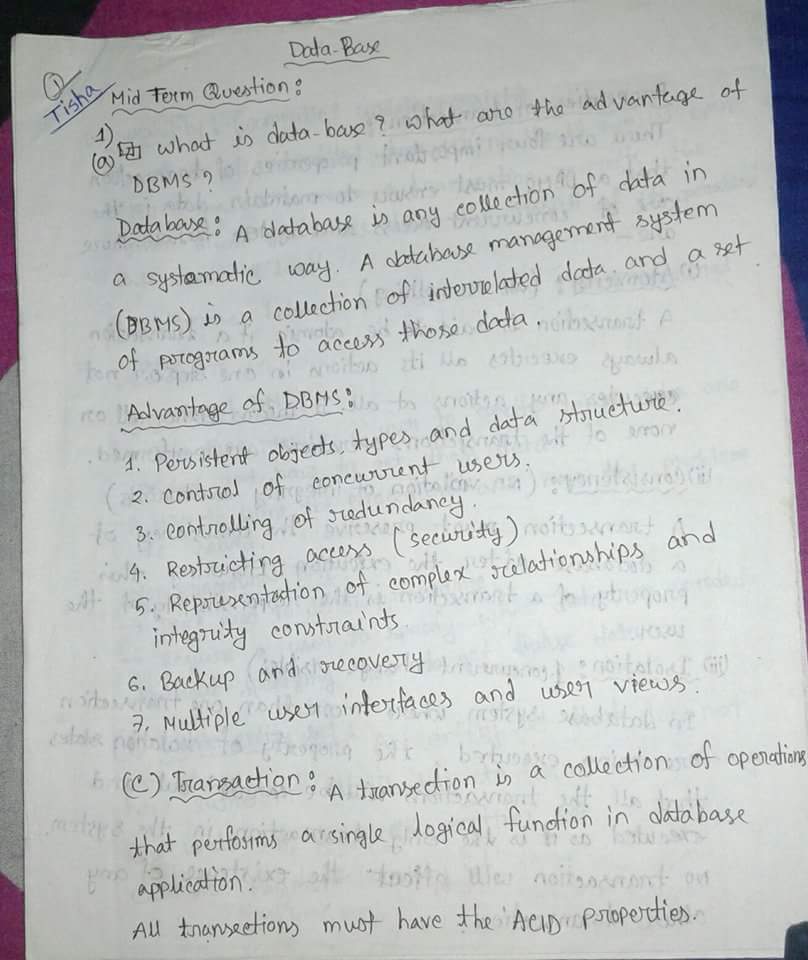 Data-Base
Tisha
Mid Term Question:
1)
(a) What is data-base? What are the advantage of
DBMS?
Database: A database is any collection of data in
a systematic way. A database management system
(DBMS) is a collection of interrelated data and a set
of programs to access those data.
Advantage of DBMS:
1. Persistent objects, types and data structure.
2. Control of concurrent users.
3. Controlling of redundancy.
4. Restricting access (security)
5. Representation of complex relationships and
integrity constraints.
6. Backup and recovery
7. Multiple user interfaces and user views.
(C) Transaction: A transection is a collection of operations
that performs a single logical function in database
application.
All transections must have the ACID properties.